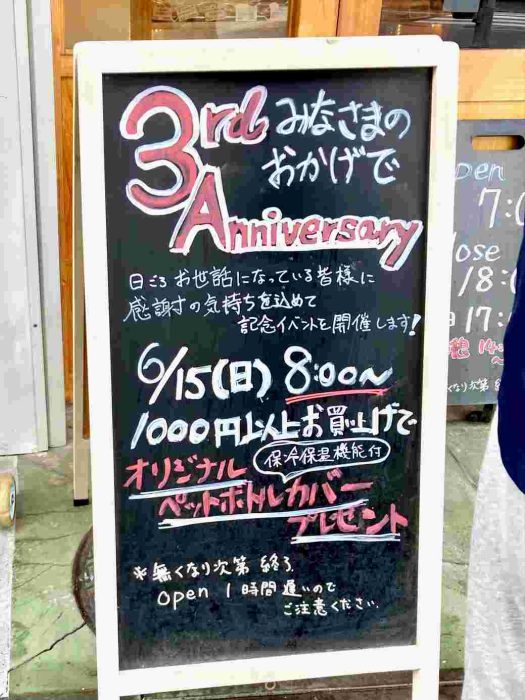 3rd みなさまの
おかげで
Anniversary
日ごろお世話になっている皆様に
感謝の気持ちを込めて
記念イベントを開催します!
6/15(日) 8:00~
1000円以上お買い上げで
オリジナル 保冷保温機能付
ペットボトルカバー
プレゼント
※無くなり次第終了
open 1時間遅いので
ご注意ください.
pen
7:0
lose
18:0
日17:
憩 14:
なり次第